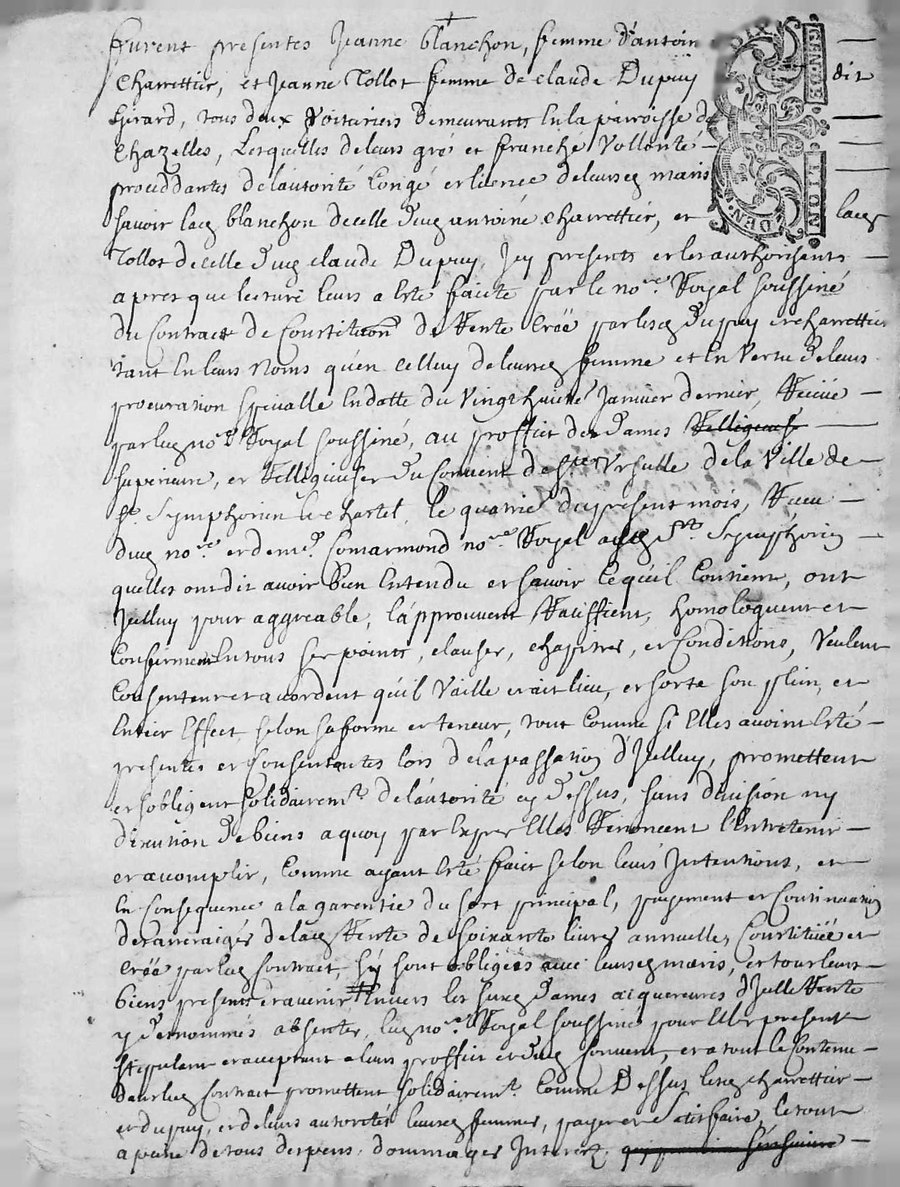 furent presentes Jeanne blanchon, femme d'antoin
Charrettier, et Jeanne Tollot femme de claude Dupuy dit
Gerard, tous deux Voituriers demeurants En la parroisse de
Chazelles, Lesquelles de leurs gré et franche Vollonté
proceddantes de lautorité Congé et licence de leursd maris
savoir lad blanchon de celle dud antoine charrettier, et lad
Tollot de celle dud claude Dupuy, Icy presents et les authorisants
apres que lecture leurs a Esté faicte par le nore Royal soussiné
du Contract de Constitution de Rente créé par lesd dupuy et charrettier
tant En leurs noms qu'en celluy de leursd femme et En Vertu de leurs
procuration speciale En datte du Vingt huict Janvier dernier, Receüe
par led nore Royal soussiné, au proffict des dames Relligieuses
superieure, et Relligieuses du Convent de Ste Ursulle de la Ville de
St Symphorien le chastel, le quatrie du present mois, Receu
dud nore et de me Comarmond nore Royal aud St Symphorien
quelles ont dit avoir bien Entendu et savoir ce quil Contient, ont
Icelluy pour aggreable, l'approuvent Ratiffient, homologuent et
Confirment En tous ses points, clauses, chapitres, et Conditions, Veulent
Consentent et acordent quil Vaille et ait lieu, et sorte son plein, et
Entier Effect, selon sa forme et teneur, tout comme si Elles avoint Esté
presentes et Consentantes lors de la passation d'Icelluy, promettent
et sobligent solidairemt de lautorité cy dessus, sans division ny
discution de biens a quoy par Expres Elles Renoncent l'Entretenir
et acomplir, Comme ayant Esté faict selon leurs Intentions, et
En Consequence a la garentie du sort principal, payement et Continuation
des arreraiges de lad Rente de soixante livres annuelles Constituée et
créé par led Contract, sy sont obligées avec leursd maris, et tous leurs
biens presents et avenir Envers les susd dames aiquereures d'Icelle Rente
y denommés absentes, led nore Royal soussiné pour Elles present
stipulant et acceptant a leurs proffict et dud Convent, et a tout le Contenu
dans led Contract promettent solidairemt Comme Dessus lesd charrettier
et dupuy, et de leurs autorités leursd femmes, payer et satisfaire, le tout
a peine de tous despens, dommages Interetz
GEN. DE
LION
DEN
DIX